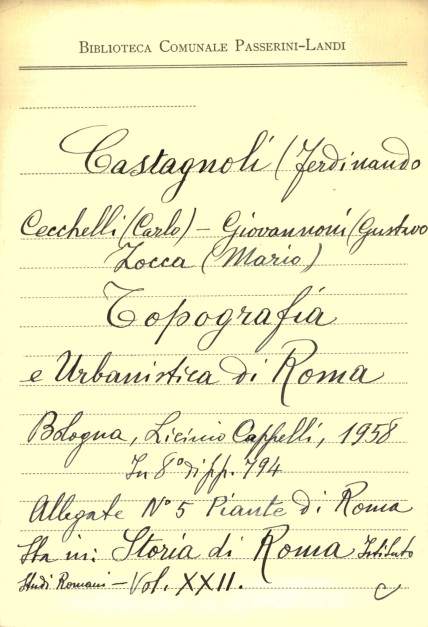 BIBLIOTECA COMUNALE PASSERINI-LANDI
Castagnoli (Ferdinando
Cecchelli (Carlo) – Giovannoni (Gustavo
Zocca (Mario)
Topografia
e Urbanistica di Roma
Bologna, Licinio Cappelli, 1958
In 8° di pp. 794
Allegate N° 5 Piante di Roma
Sta in: Storia di Roma Istituto
Studi Romani – Vol. XXII.